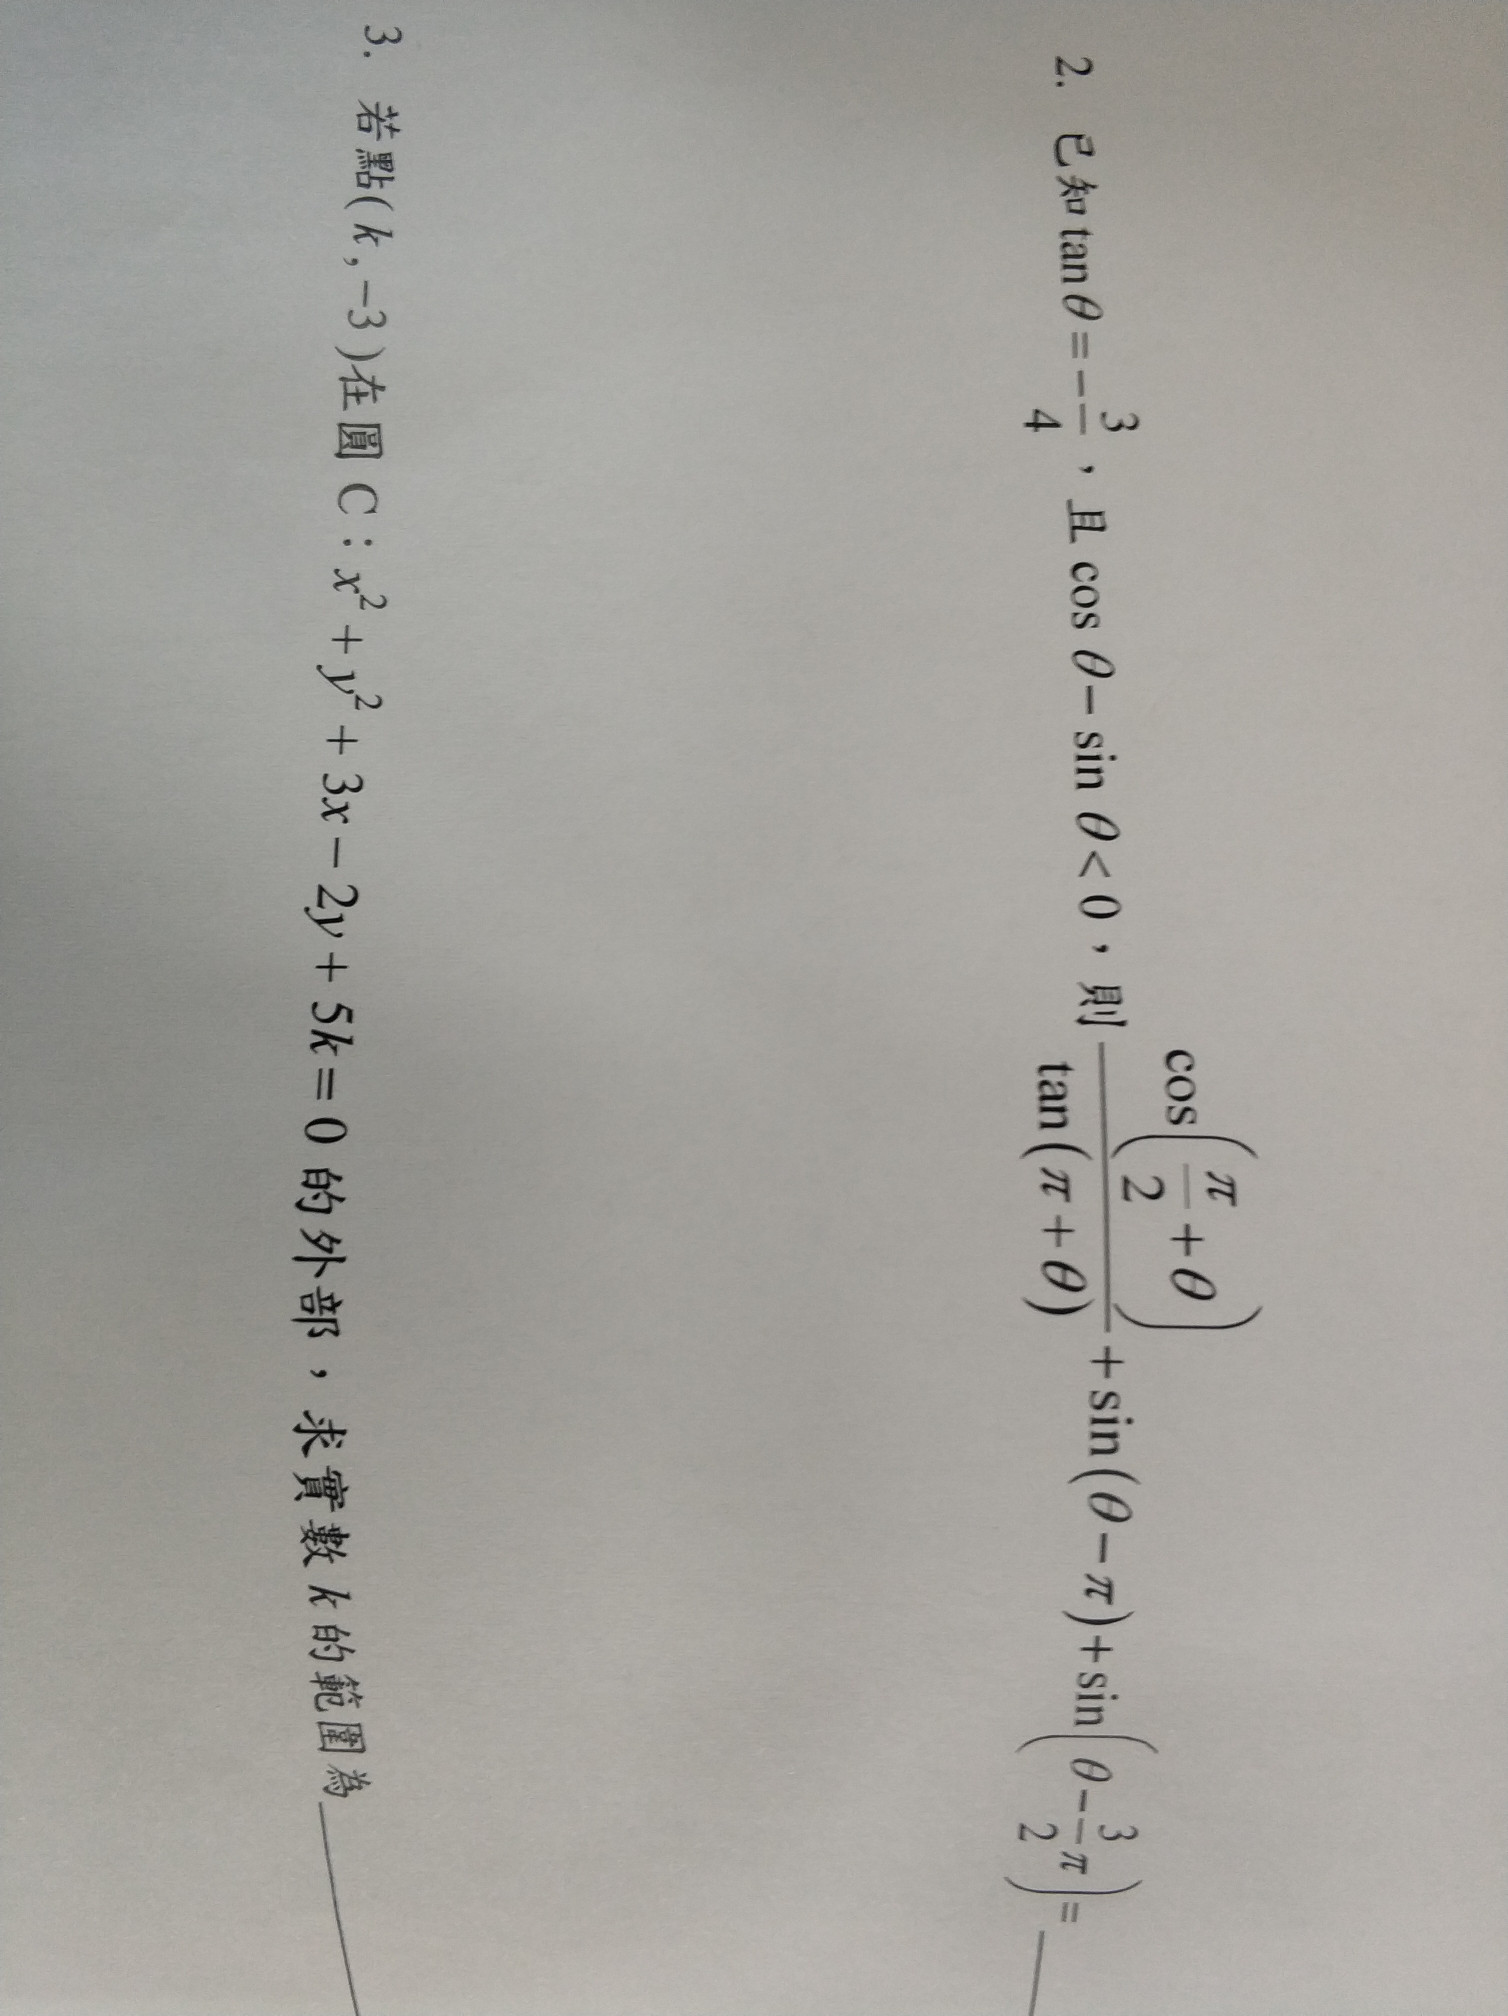 2. 已知 tanθ = -3/4，且 cos θ - sin θ < 0，則 cos(π/2 + θ)/tan(π + θ) + sin(θ - π) + sin(θ - 3/2 π) = ___
3. 若點(k, -3)在圓 C : x² + y² + 3x - 2y + 5k = 0 的外部，求實數 k 的範圍為___